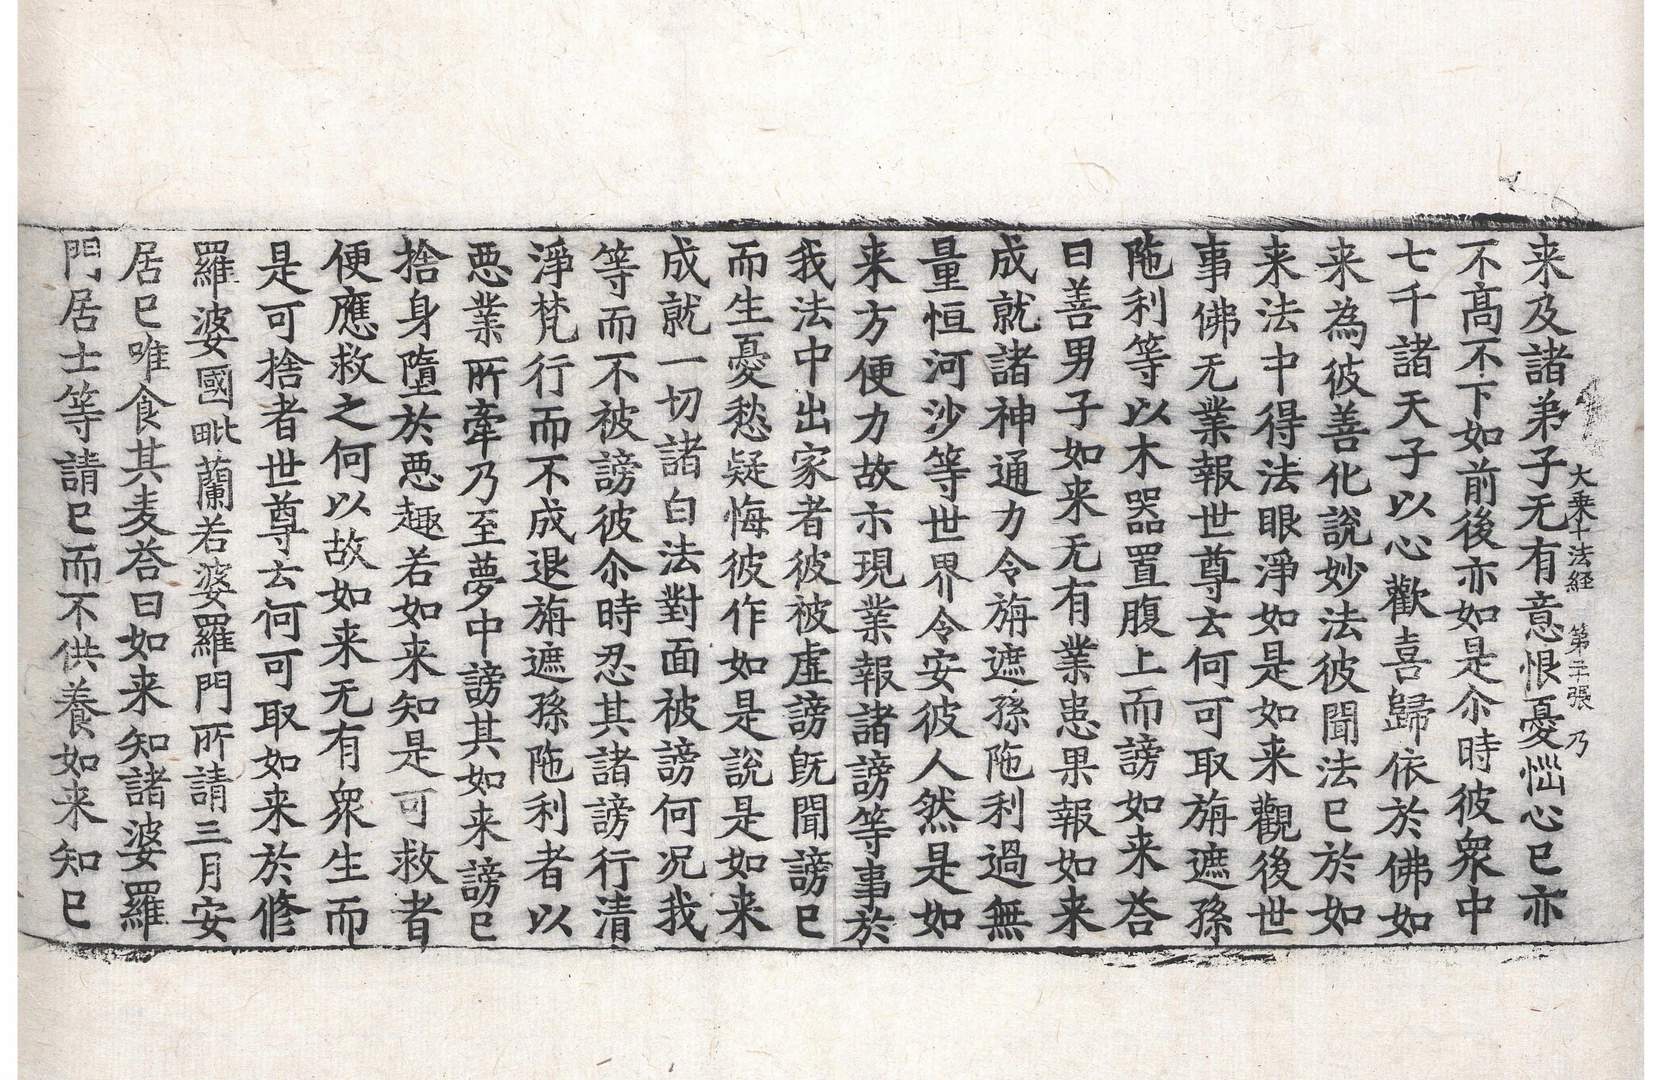 大乗十法経 第二十張 乃
来及諸弟子无有意恨憂㤙心巳亦
不髙不下如前後亦如是尒時彼衆中
七千諸天子以心歡喜歸依於佛如
来為彼善化說妙法彼聞法巳於如
来法中得法眼淨如是如来觀後世
事佛无業報世尊云何可取旃遮孫
陁利等以木器置腹上而謗如来荅
曰善男子如来无有業患果報如来
成就諸神通力令旃遮孫陁利過無
量恒河沙等世界令安彼人然是如
来方便力故示現業報諸謗等事於
我法中出家者彼被虛謗旣聞謗巳
而生憂愁疑悔彼作如是說是如来
成就一切諸白法對面被謗何况我
等而不被謗彼尒時忍其諸謗行清
淨梵行而不成退旃遮孫陁利者以
惡業所牽乃至夢中謗其如来謗巳
捨身墮於惡趣若如来知是可救者
便應救之何以故如来无有衆生而
是可捨者世尊云何可取如来於脩
羅婆國毗蘭若婆羅門所請三月安
居巳唯食其麦荅曰如来知諸婆羅
門居士等請巳而不供養如来知巳